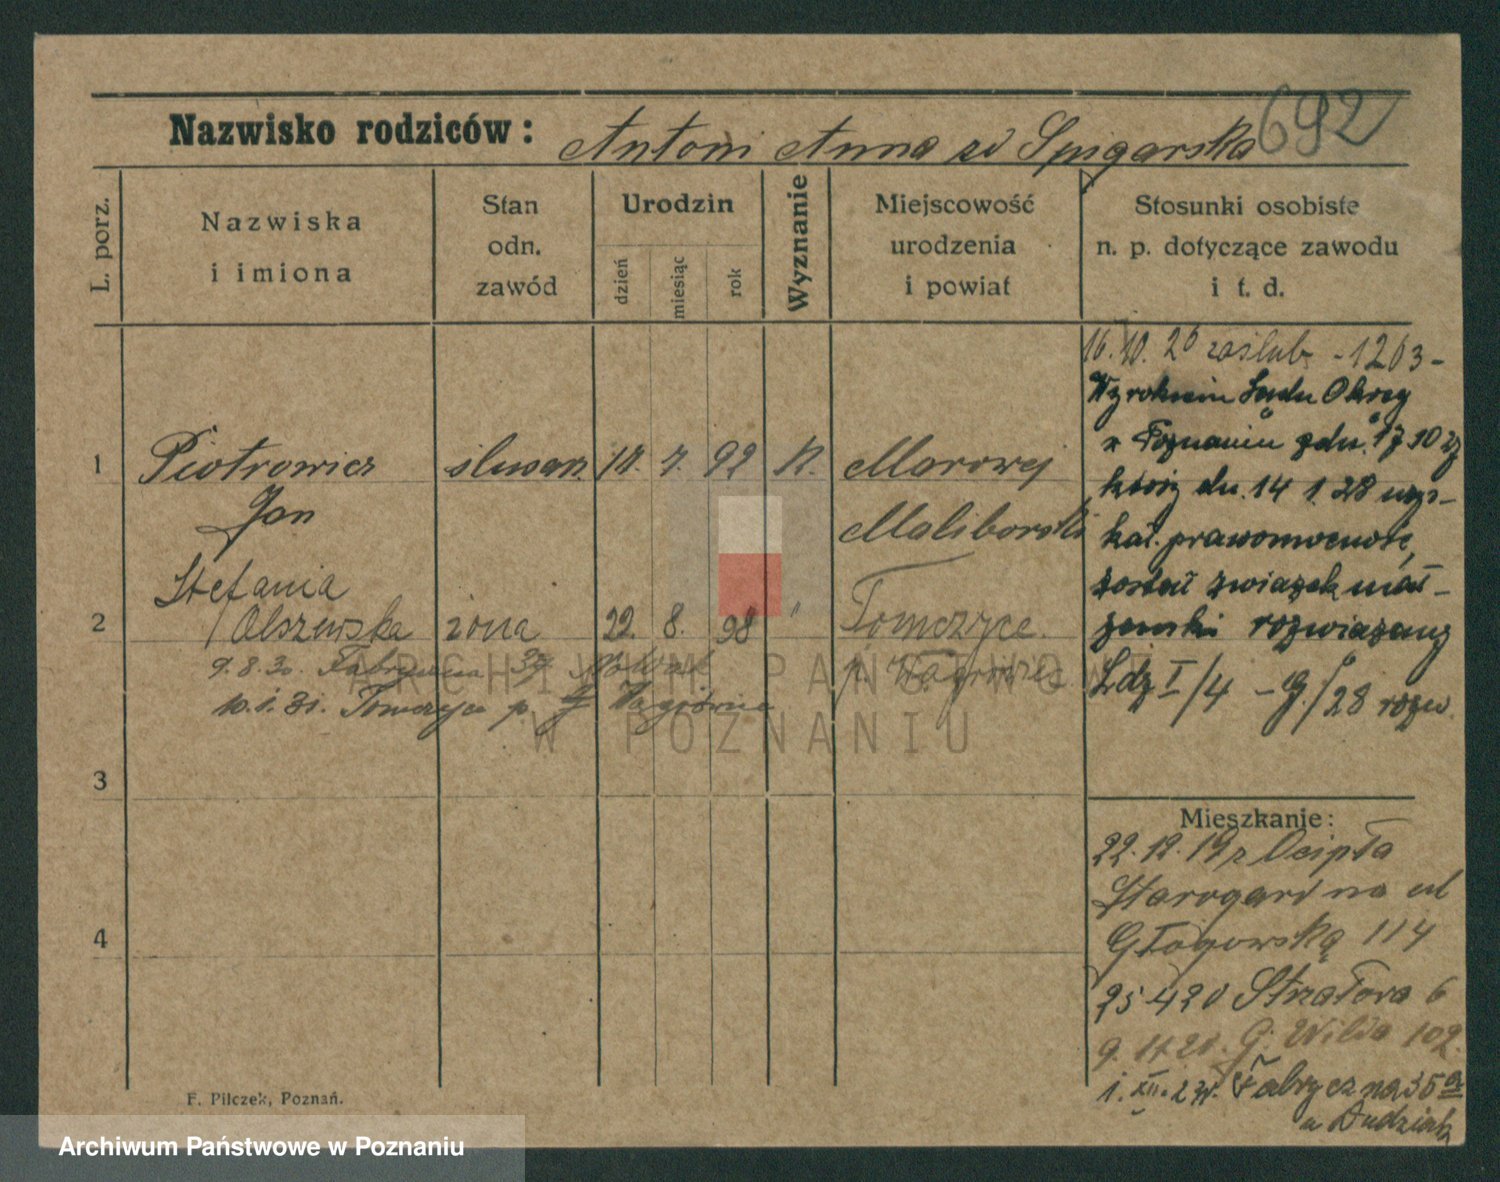 692
Nazwisko rodziców: Antoni Anna zd Spigarska
L. porz.
Nazwiska
i imiona
Stan
odn.
zawód
Urodzin
dzień
miesiąc
rok
Wyznanie
Miejscowość
urodzenia
i powiat
Stosunki osobiste
n. p. dotyczące zawodu
i t. d.
1 Piotrowicz ślusarz. 7. 92 K.
Jan
Stefania
2 Olszewska żona 22. 8. 98 " Tomczyce.
9.8.30. Fabryczna
10.1.31. Tomczyce p.
3
4
16.10.26 zaślub. -1263-
Wyrokiem Sądu Okręg
w Poznaniu z dn. 17 10 27
który dn. 14 1 28 uzys-
kał prawomocność,
został związek mał-
żeński rozwiązany
Ldz I/4 - G/28 rozw.
Mieszkanie:
22.12.19 z Ocipla
Starogard na ul
Głogowską 114
25 4 20 Strzałowa 6
G. Wilda 102.
Fabryczna 35a
u Dudziak
F. Pilczek, Poznań.
ARCHIWUM PAŃSTWOWE
W POZNANIU
Archiwum Państwowe w Poznaniu